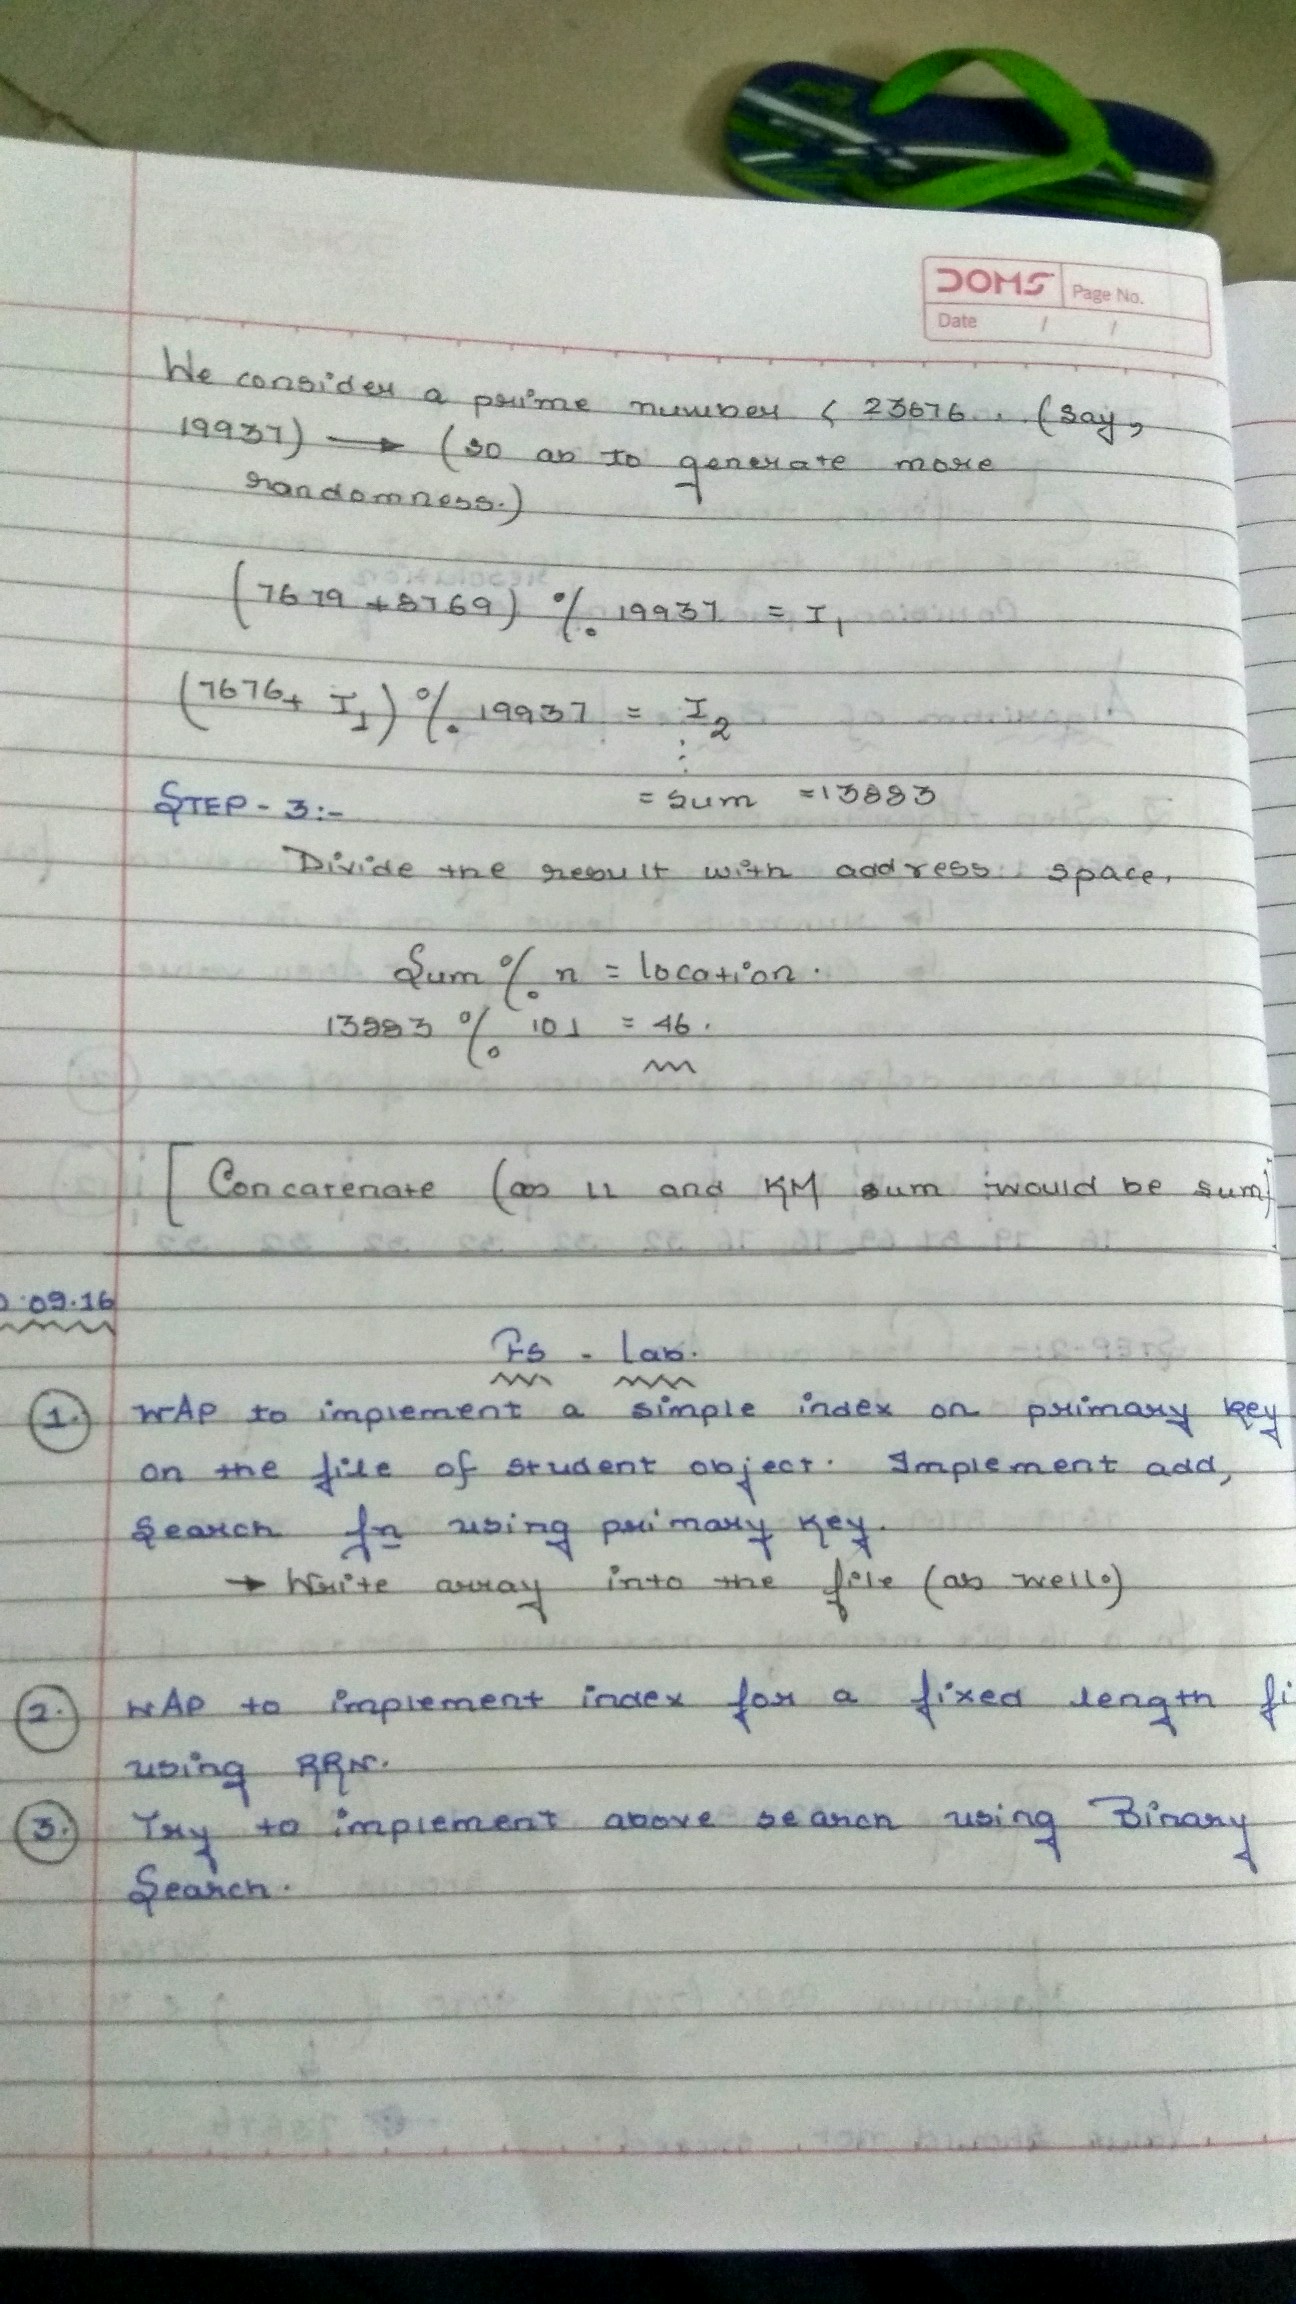 DOMS
Page No.
Date / /
We consider a prime number < 23676. (say,
19937) → (so as to generate more
randomness.)
(7679 + 8769) % 19937 = I1
(7676 + I1) % 19937 = I2
:
= sum = 13883
STEP - 3:-
Divide the result with address space.
Sum % n = location.
13883 % 101 = 46.
[Concatenate (as LL and KM sum would be sum)
09.16
FS - Lab.
1. WAP to implement a simple index on primary key
on the file of student object. Implement add,
Search fn using primary key.
→ Write array into the file (as well.)
2. WAP to implement index for a fixed length fi
using RRN.
3. Try to implement above search using Binary
Search.